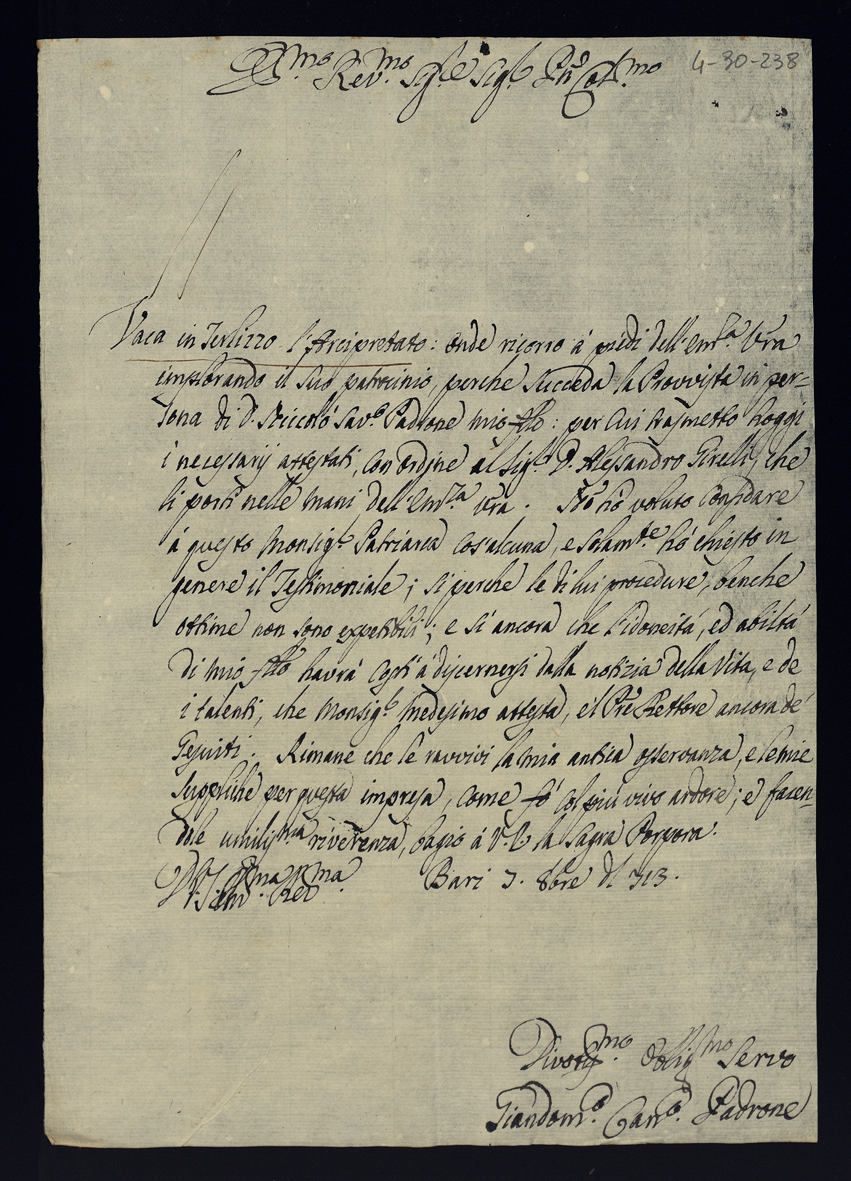 Em.mo Rev.mo Sig.re Sig.r Pñ Col.mo 4-30-238
Vaca in Terlizzo l'Arcipretato: onde ricorro á piedi dell'Em.a Vra
implorando il suo patrocinio, perche succeda la Provvista in per=
sona di D. Niccoló Sav.o Padrone mio flło: per cui trasmetto hoggi
i necessarij attestati, con ordine al Sig.r D. Alesandro Girelli, che
li porti nelle mani dell'Em.za Vra. Nõ hó voluto confidare
á questo Monsig.r Patriarca cos'alcuna, e solam.te hó chiesto in
genere il Testimoniale; sí perche le di lui procedure, benche
ottime non sono expetibili; e sí ancora che l'idoneitá, ed abiltá
di mio flło havrá costí á discernersi dalla notizia della Vita, e de
i talenti, che Monsig.r medesimo attesta, e'l Pre Rettore ancora de'
Gesuiti. Rimane che le ravvivi la mia antica osservanza, e le mie
suppliche per questa impresa, come fó col piú vivo ardore; e facen=
dole umilis.ma riverenza, bagio á V.E. la Sagra Porpora.
D.V. Em.ma Rev.ma Bari 7. 8bre del 713.
Divotis.mo Oblig.mo Servo
Giandom.o Can.o Padrone